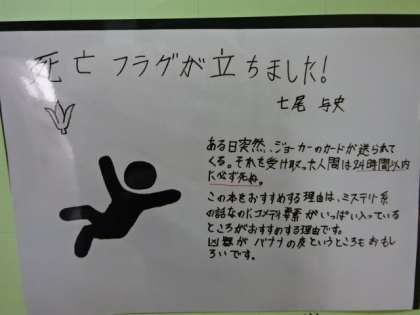 死亡フラグが立ちました!
七尾 与史
ある日突然、ジョーカーのカードが送られて
くる。それを受け取った人間は24時間以内
に必ず死ぬ。
この本をおすすめする理由は、ミステリ系
の話なのにコメデリ要素がいっぱい入っている
ところがおすすめする理由です。
凶器がバナナの皮というところもおもし
ろいです。